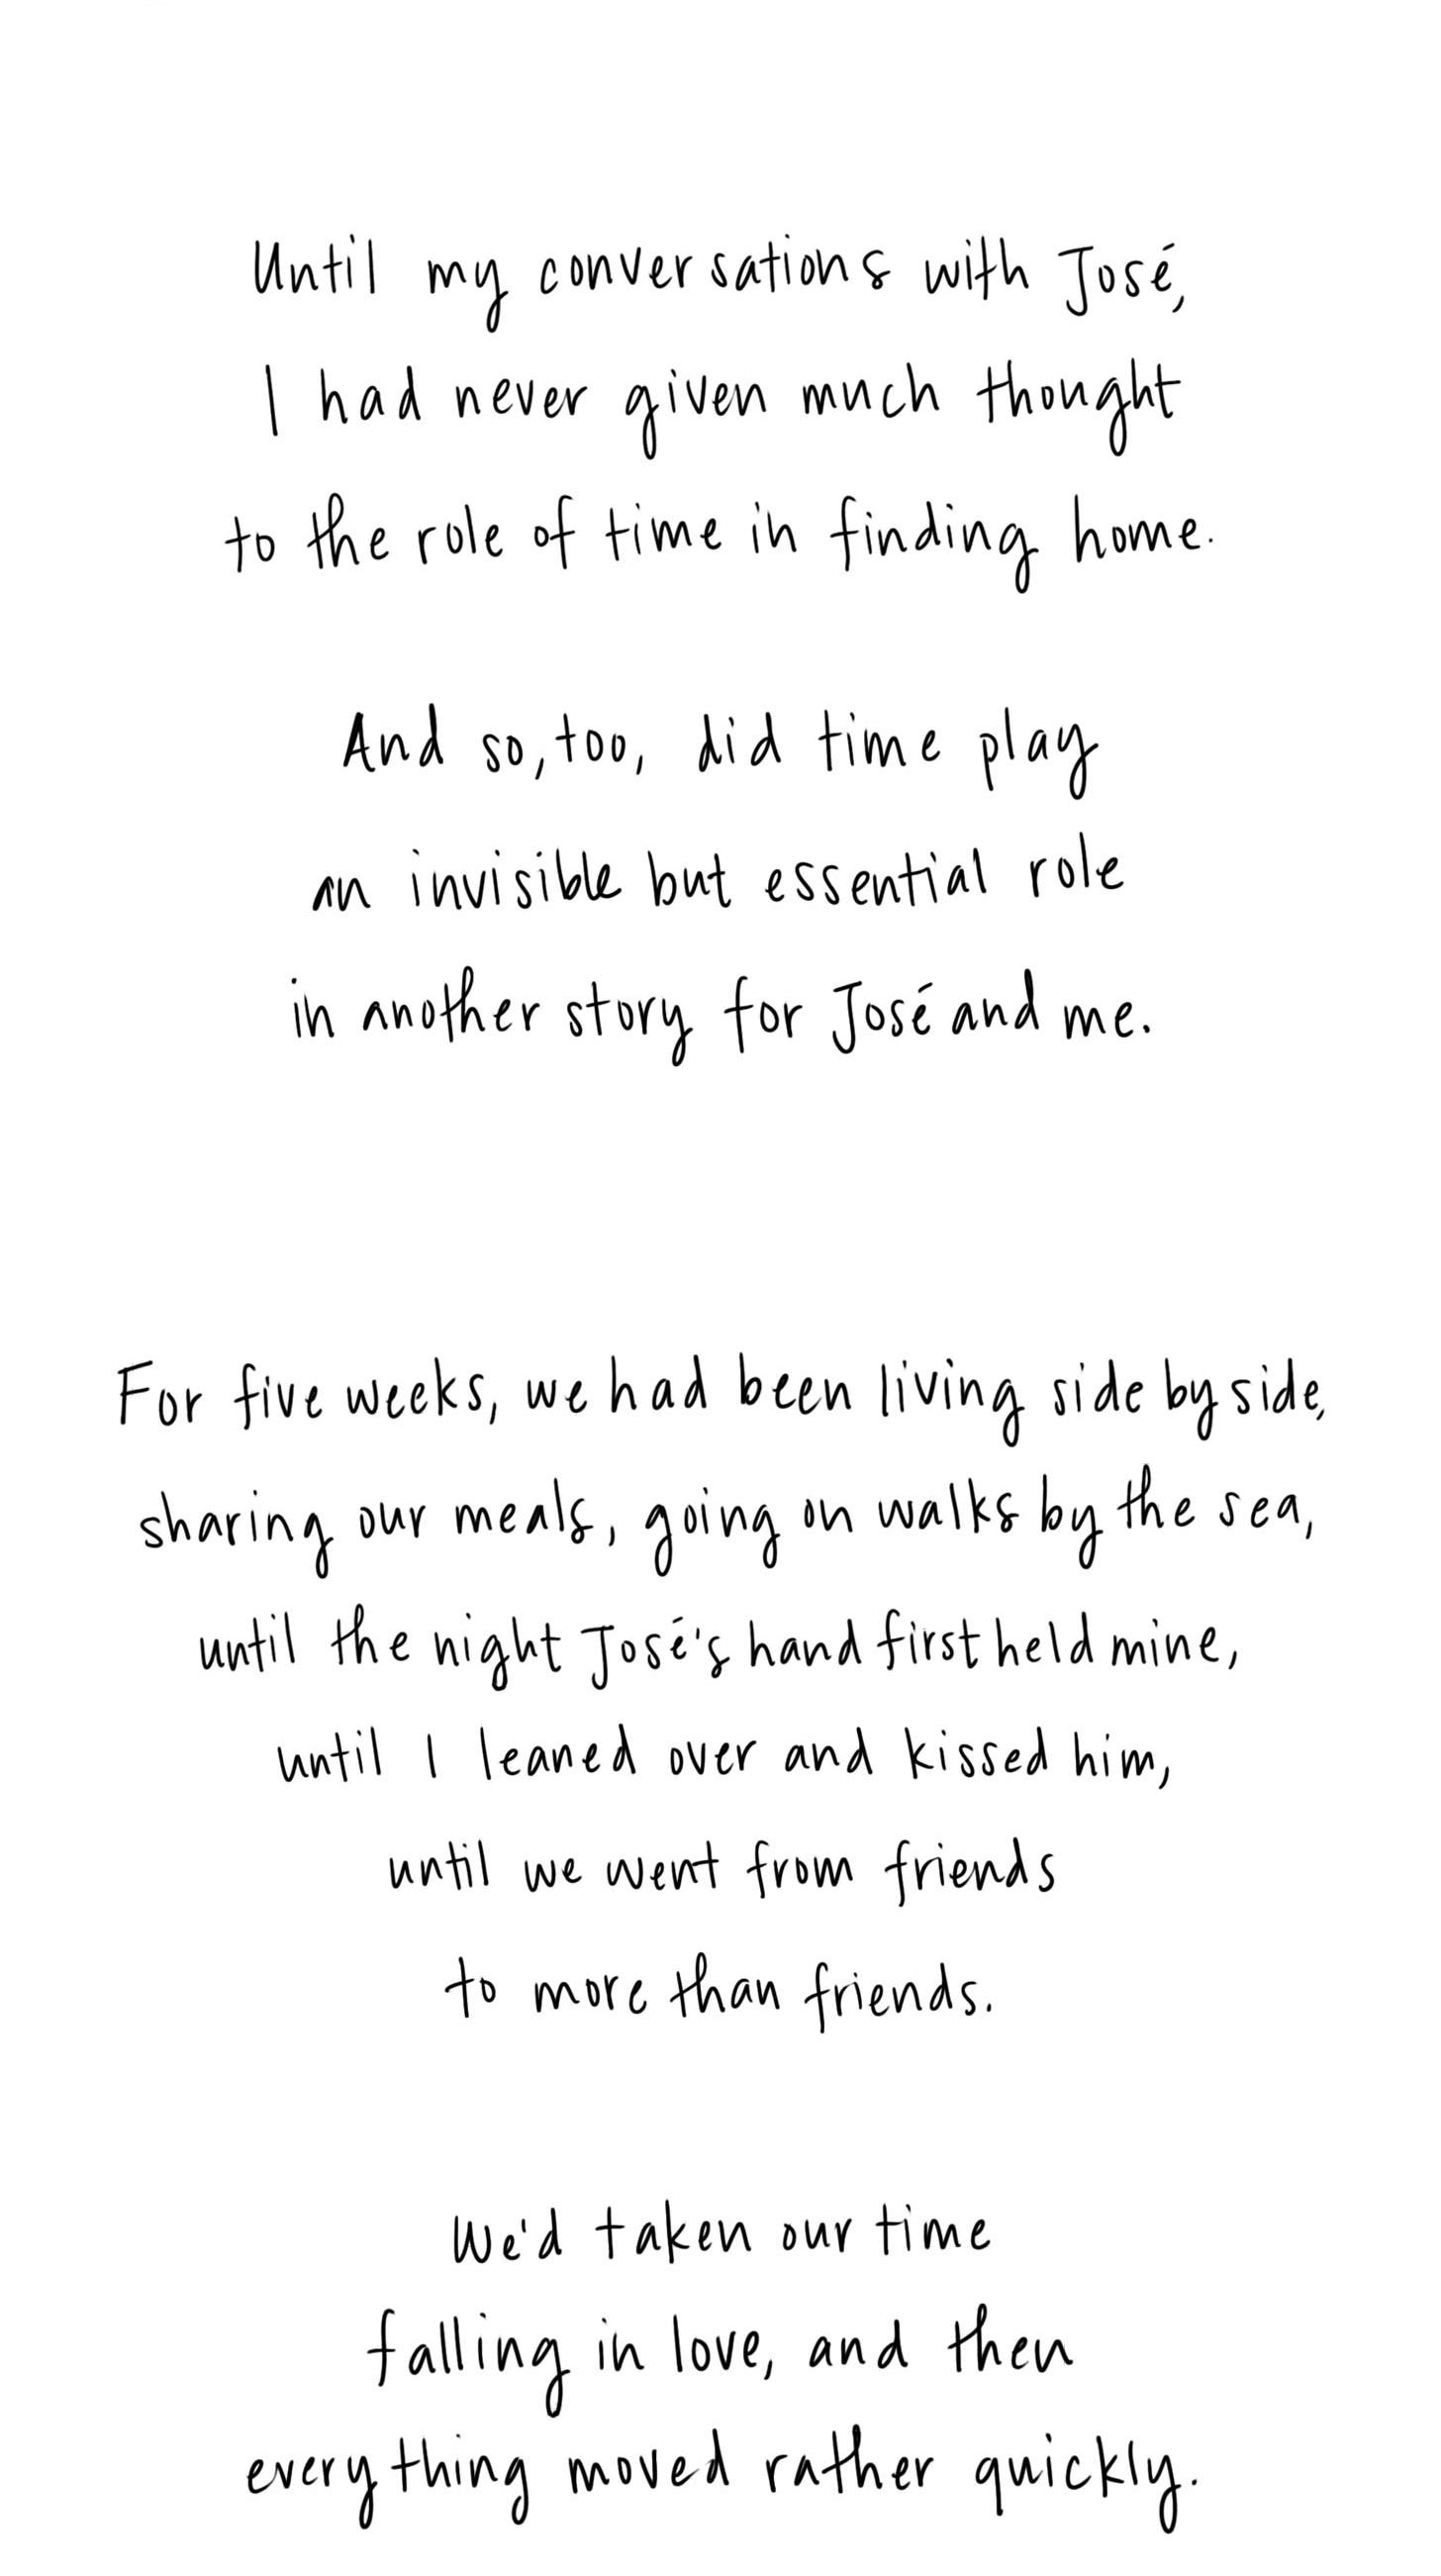 Until my conversations with José,
I had never given much thought
to the role of time in finding home.
And so, too, did time play
an invisible but essential role
in another story for José and me.
For five weeks, we had been living side by side,
sharing our meals, going on walks by the sea,
until the night José's hand first held mine,
until I leaned over and kissed him,
until we went from friends
to more than friends.
We'd taken our time
falling in love, and then
everything moved rather quickly.